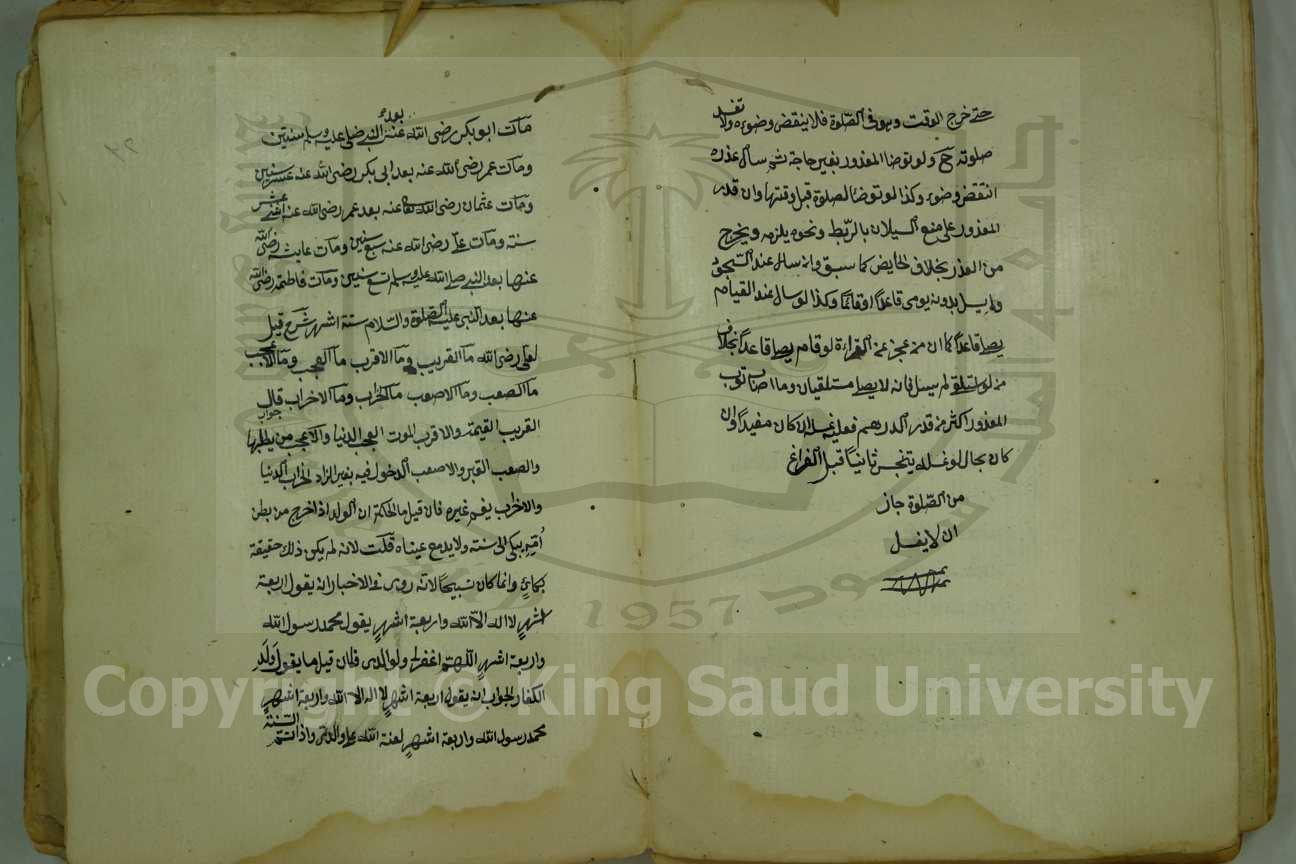 حتى خرج الوقت وهو في الصلوة فلا ينقض وضوءه ولا تفسد
صلوته ولو توضا المعذور بغير حاجة ثم سال عذره
انتقض وضوءه وكذا لو توضأ لصلوة قبل وقتها وان قدر
المعذور على منع السيلان بالربط ونحوه يلزمه ويخرج
من العذر بخلاف الحايض كما سبق وان سال عند السجود
ولم يسل بدونه يومى قاعداً او قائما وكذا لو سال عند القيام
يصلى قاعداً كما ان من عجز عن القراءة لو قام يصلى قاعداً بخلاف
من لو استلقى لم يسل فانه لا يصلى مستلقيا وما اصاب ثوب
المعذور اكثر من قدر الدرهم فعليه غسله ان كان مفيداً وان
كان بحال لو غسله يتنجس ثانياً قبل الفراغ
من الصلوة جاز
ان لا يغسله
مات ابو بكر رضى الله عنه بعد النبى صلى الله عليه وسلم سنتين
ومات عمر رضى الله عنه بعد ابى بكر رضى الله عنه عشر سنين
ومات عثمان رضى الله تعا عنه بعد عمر رضى الله عنه اثنى عشر
سنة ومات على رضى الله عنه سبع سنين ومات عايشة رضى الله
عنها بعد النبى صلى الله عليه وسلم تسع سنين ومات فاطمة رضى الله
عنها بعد النبى عليه الصلوة والسلام ستة اشهر شرح قيل
لعلى رضى الله ما القريب وما الاقرب ما العجب وما الاعجب
ما الصعب وما الاصعب ما الخراب وما الاخراب قال
جواب
القريب القيمة والاقرب الموت العجب الدنيا والاعجب من يطلبها
والصعب القبر والاصعب الدخول فيه بغير الزاد الخراب الدنيا
والاخراب غيره فان قيل ما الحكمة ان الولد اذا خرج من بطن
امه يبكى الى سنة ولا يدمع عيناه قلت لانه لم يكن ذلك حقيقة
بكائ وانما كان تسبيحا لانه روى فى الاخبار انه يقول اربعة
اشهر لا اله الا الله واربعة اشهر يقول محمد رسول الله
واربعة اشهر اللهم اغفر لى ولوالدى فان قيل ما يقول ولد
الكفار الجواب انه يقول اربعة اشهر لا اله الا الله واربعة اشهر
محمد رسول الله واربعة اشهر لعنة الله على والدى واذا تم السنة
Copyright © King Saud University
1957